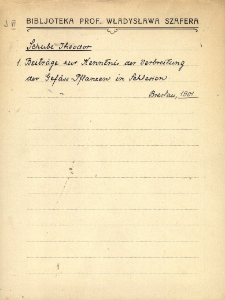 BIBLJOTEKA PROF. WŁADYSŁAWA SZAFERA
Schube Theodor
1. Beiträge zur Kenntnis der Verbreitung
der Gefäss-Pflanzen in Schlesien
Breslau, 1901